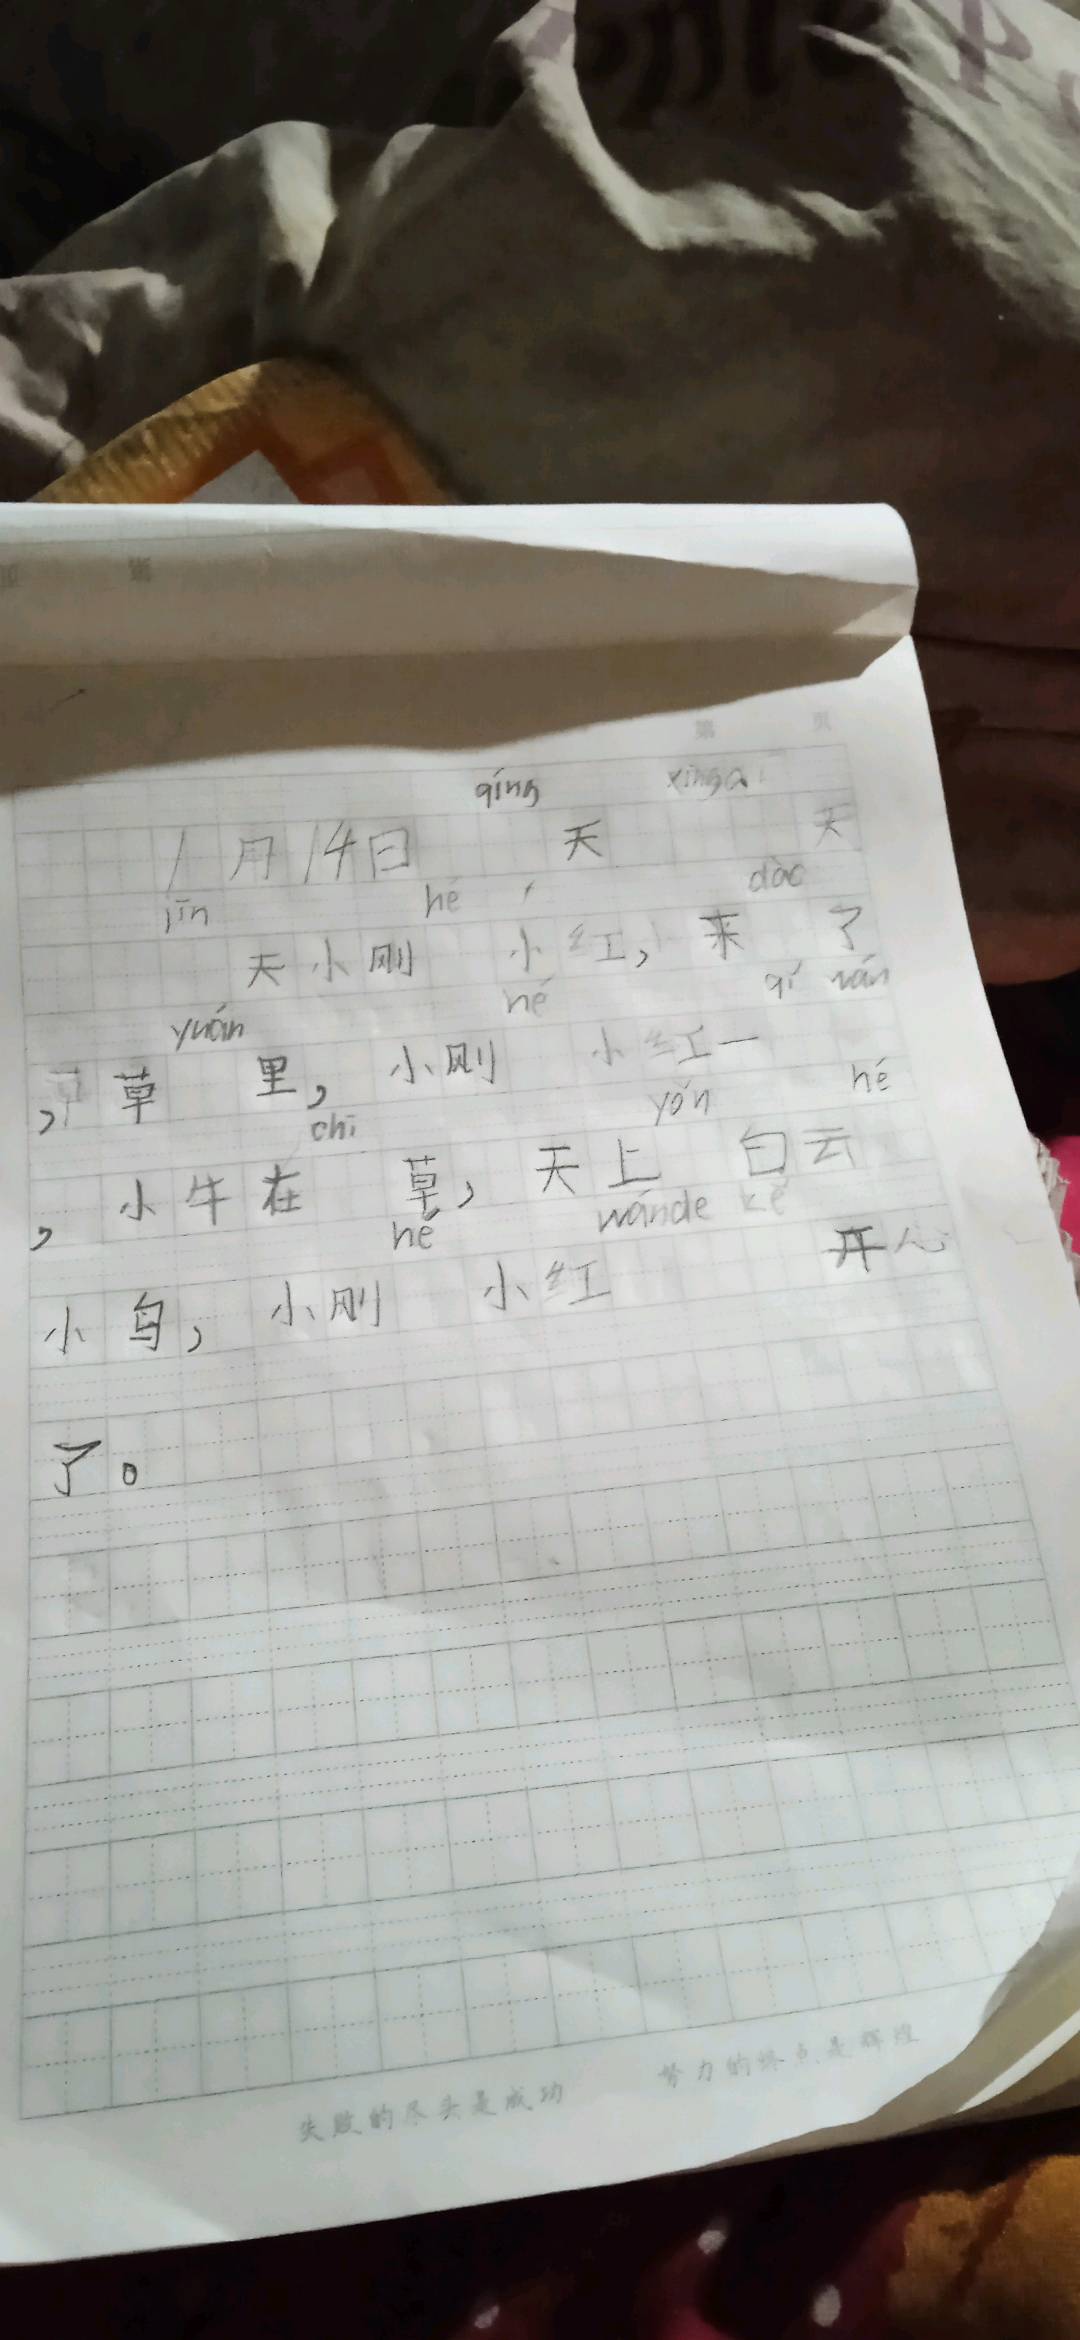 第 页
qíng xīngqī
1月14日 天 天
jīn hé dào
天小刚 小红，来 了
yuán hé qí wán
，草 里，小刚 小红一
chī yǒu hé
，小牛在 草，天上 白云
hé wánde kě
小鸟，小刚 小红 开心
了。
失败的尽头是成功 努力的终点是辉煌